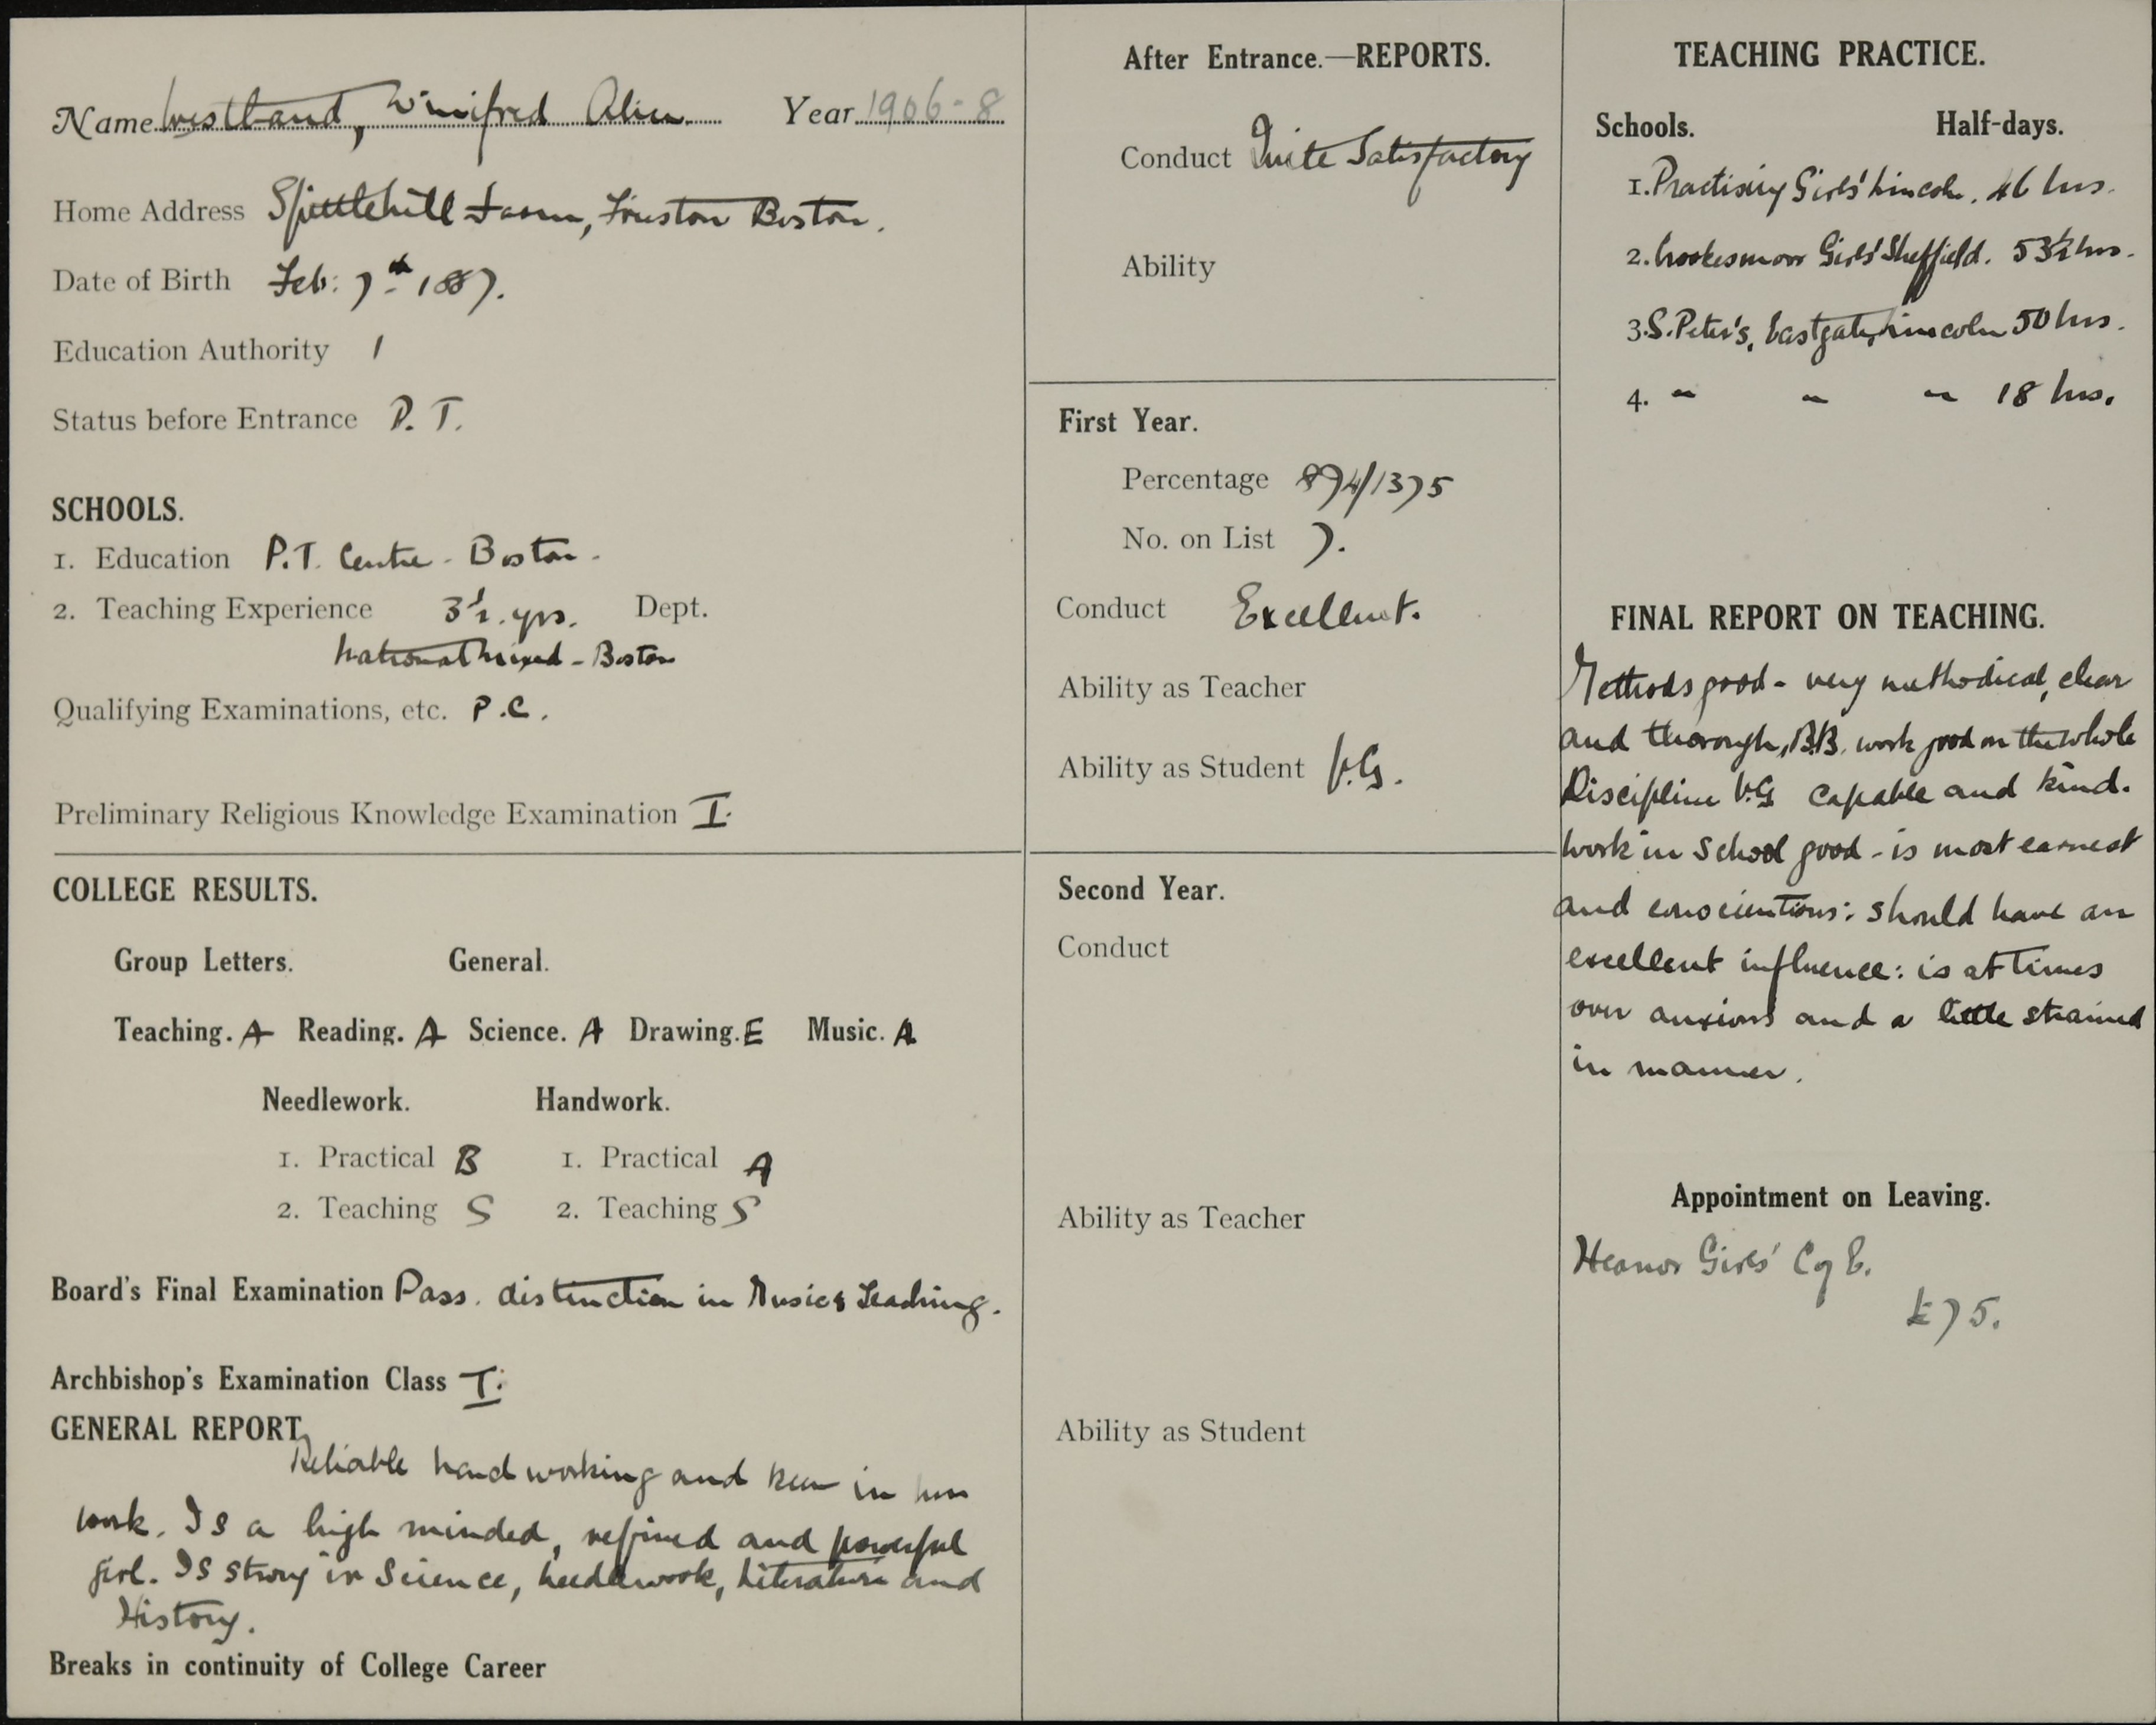 Name Westland, Winifred Alice. Year 1906-8
Home Address Spittlehill Farm, Frieston Boston.
Date of Birth Feb: 7th 1887.
Education Authority 1
Status before Entrance P. T.
SCHOOLS.
1. Education P.T. Centre - Boston.
2. Teaching Experience 3½ yrs. Dept.
National Mixed - Boston
Qualifying Examinations, etc. P.C.
Preliminary Religious Knowledge Examination I.
COLLEGE RESULTS.
Group Letters. General.
Teaching. A Reading. A Science. A Drawing. E Music. A
Needlework. Handwork.
1. Practical B 1. Practical A
2. Teaching S 2. Teaching S
Board's Final Examination Pass. distinction in Music & Teaching.
Archbishop's Examination Class I.
GENERAL REPORT.
Reliable hard working and keen in her
work. Is a high minded, refined and powerful
girl. Is strong in Science, Needlework, Literature and
History.
Breaks in continuity of College Career
After Entrance.—REPORTS.
Conduct Quite Satisfactory
Ability
First Year.
Percentage 874/1375
No. on List 7.
Conduct Excellent.
Ability as Teacher
Ability as Student V.G.
Second Year.
Conduct
Ability as Teacher
Ability as Student
TEACHING PRACTICE.
Schools. Half-days.
1. Practising Girls' Lincoln. 46 hrs.
2. Crookesmoor Girls' Sheffield. 53½ hrs.
3. S. Peter's, Eastgate, Lincoln 50 hrs.
4. " " " 18 hrs.
FINAL REPORT ON TEACHING.
Methods good - very methodical, clear
and thorough, B.B. work good on the whole
Discipline V.G capable and kind.
Work in School good - is most earnest
and conscientious: should have an
excellent influence: is at times
over anxious and a little strained
in manner.
Appointment on Leaving.
Heanor Girls' C of E.
£75.